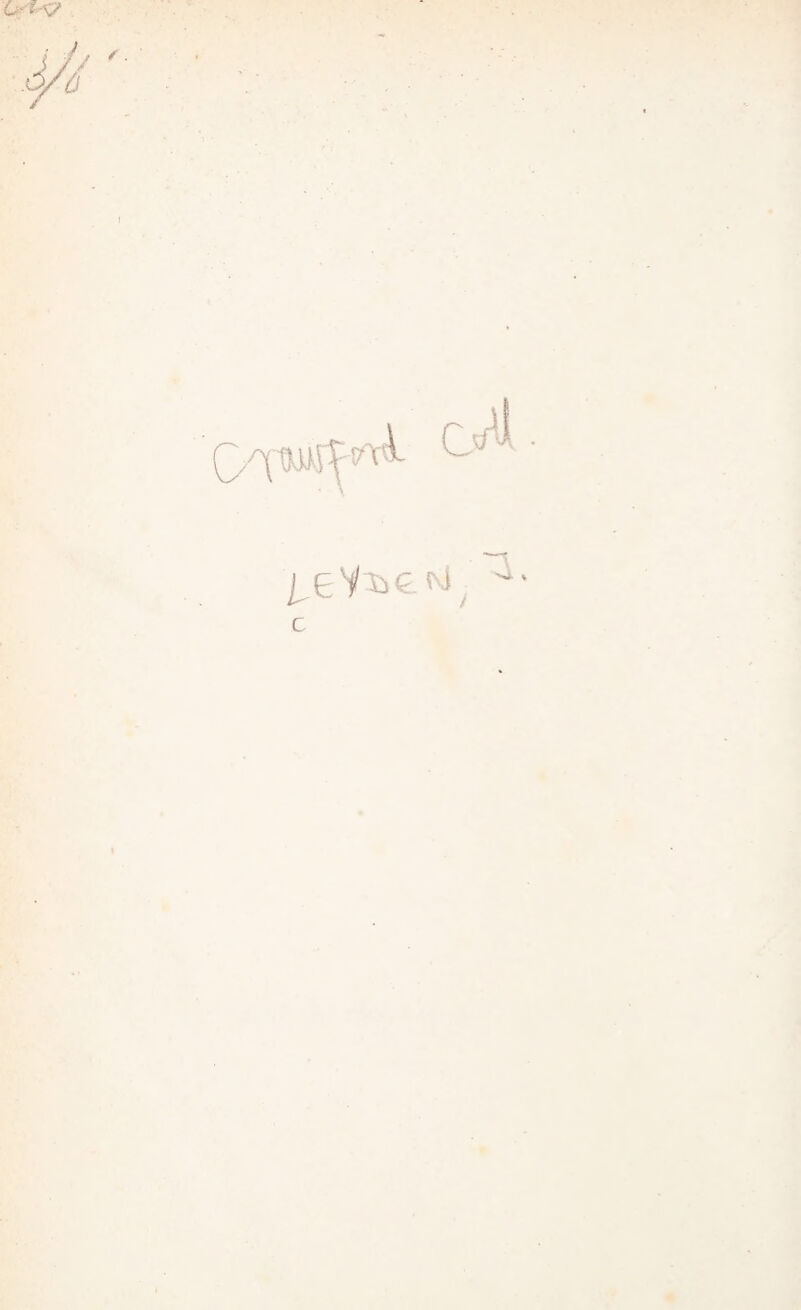 3/6
Crawford Coll.
LEYDEN, J.
C